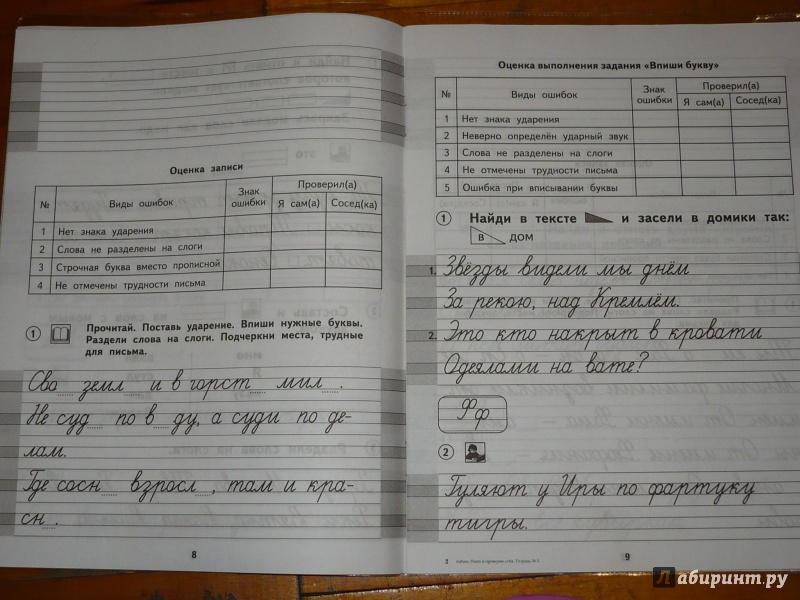 Оценка записи
№ Виды ошибок Знак ошибки Проверил(а)
Я сам(а) Сосед(ка)
1 Нет знака ударения
2 Слова не разделены на слоги
3 Строчная буква вместо прописной
4 Не отмечены трудности письма
1 Прочитай. Поставь ударение. Впиши нужные буквы.
Раздели слова на слоги. Подчеркни места, трудные
для письма.
Сво... земл... и в горст... мил... .
Не суд... по в...ду, а суди по де-
лам.
Где сосн... взросл..., там и кра-
сн... .
8
Оценка выполнения задания «Впиши букву»
№ Виды ошибок Знак ошибки Проверил(а)
Я сам(а) Сосед(ка)
1 Нет знака ударения
2 Неверно определён ударный звук
3 Слова не разделены на слоги
4 Не отмечены трудности письма
5 Ошибка при вписывании буквы
1 Найди в тексте и засели в домики так:
в дом
1. Звёзды видели мы днём
За рекою, над Кремлём.
2. Это кто накрыт в кровати
Одеялами на вате?
Фф
2
Гуляют у Иры по фартуку
тигры.
9
Лабиринт.ру